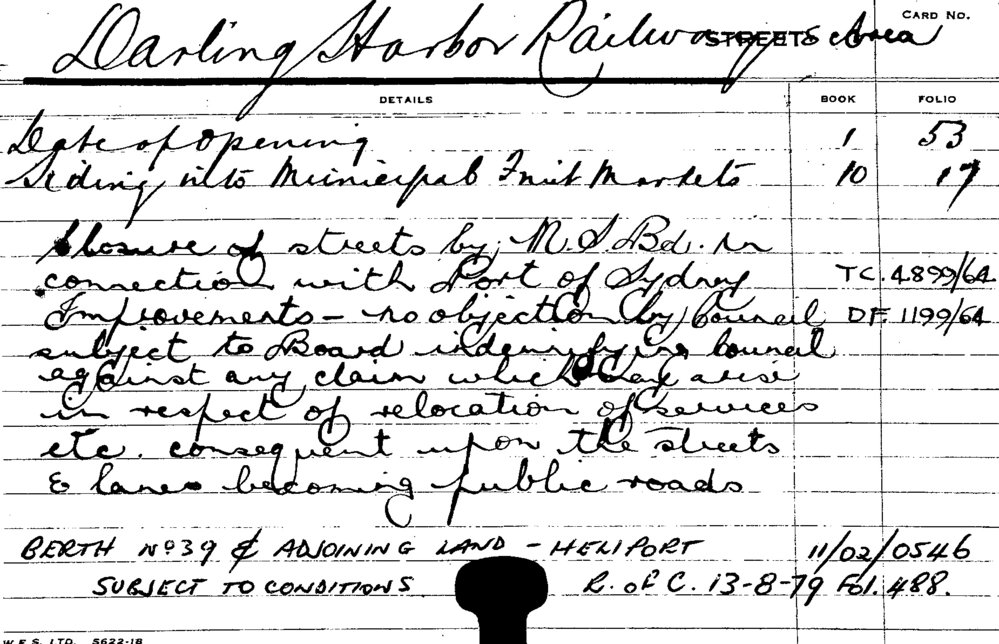 CARD NO.
Darling Harbor Railway STREETS Area
DETAILS BOOK FOLIO
Date of opening 1 53
Siding into Municipal Fruit Markets 10 17
Closure of streets by M.S.Bd. in
connection with Port of Sydney TC. 4899/64
Improvements - no objection by Council DF. 1199/64
subject to Board indemnifying Council
against any claim which may arise
in respect of relocation of services
etc. consequent upon the streets
& lanes becoming public roads
BERTH No 39 & ADJOINING LAND - HELIPORT 11/02/0546
SUBJECT TO CONDITIONS R. of C. 13-8-79 Fol. 488.
W.E.S. LTD. S622-1B